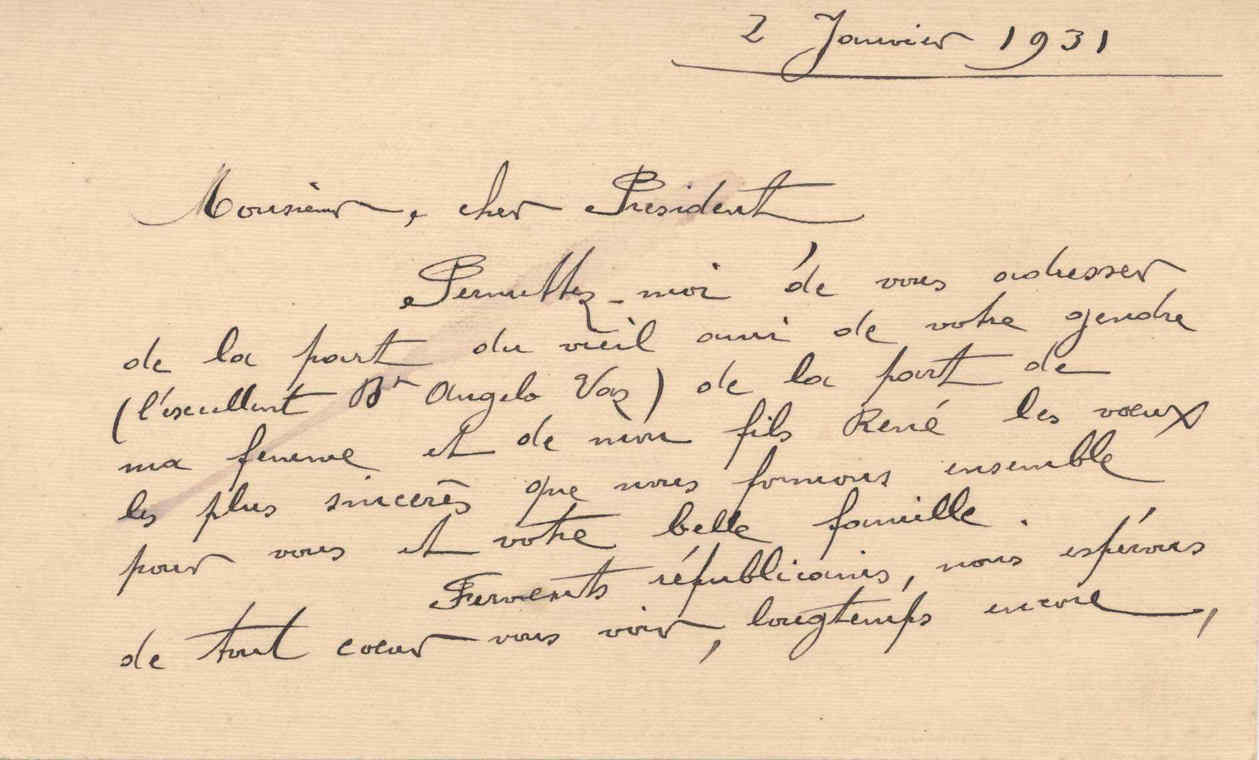 2 Janvier 1931
Monsieur, cher Président
Permettez-moi de vous adresser
de la part du vieil ami de votre gendre
(l'excellent Dr Angelo Vaz) de la part de
ma femme et de mon fils René les vœux
les plus sincères que nous formons ensemble
pour vous et votre belle famille.
Fervents républicains, nous espérons
de tout coeur vous voir, longtemps encore,